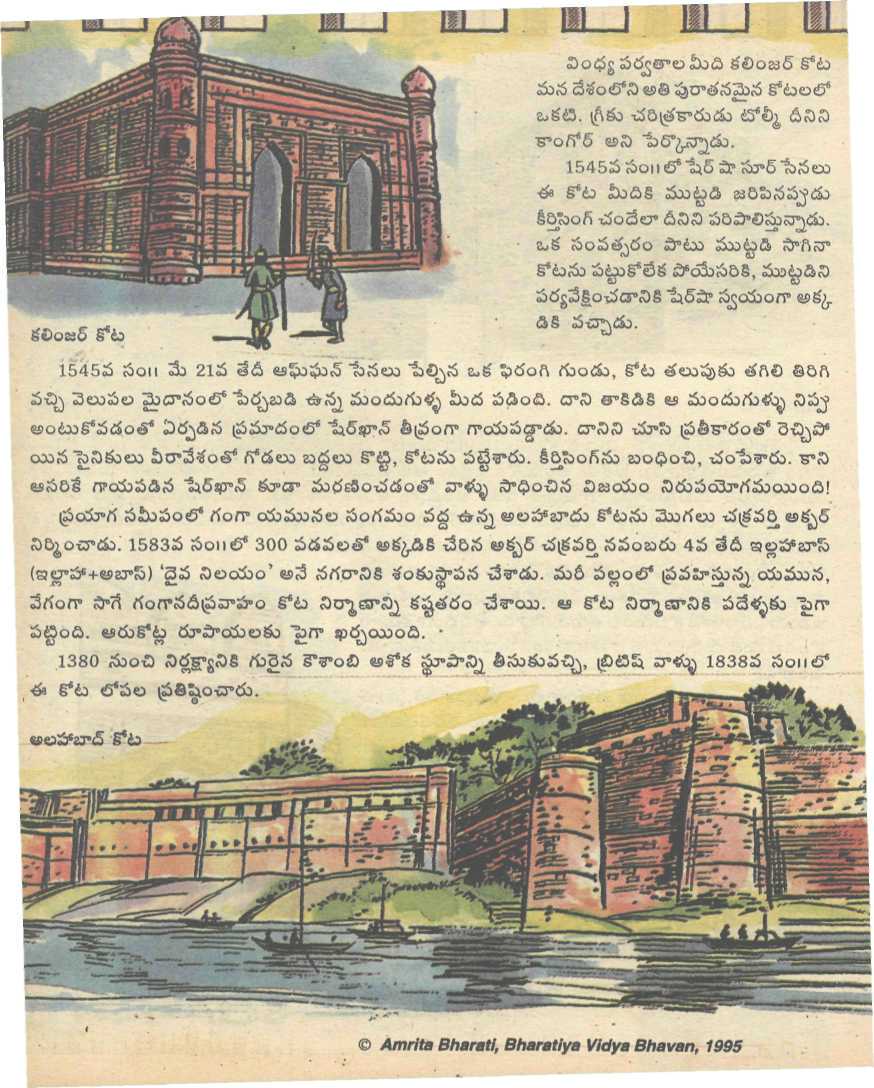 వింధ్య పర్వతాల మీది కలింజర్ కోట
మన దేశంలోని అతి పురాతనమైన కోటలలో
ఒకటి. గ్రీకు చరిత్రకారుడు టోల్మీ దీనిని
కాంగోర్ అని పేర్కొన్నాడు.
1545వ సం॥లో షేర్ షా సూర్ సేనలు
ఈ కోట మీదికి ముట్టడి జరిపినప్పుడు
కీర్తిసింగ్ చందేలా దీనిని పరిపాలిస్తున్నాడు.
ఒక సంవత్సరం పాటు ముట్టడి సాగినా
కోటను పట్టుకోలేక పోయేసరికి, ముట్టడిని
పర్యవేక్షించడానికి షేర్‌షా స్వయంగా అక్క
డికి వచ్చాడు.
కలింజర్ కోట
1545వ సం॥ మే 21వ తేదీ ఆఫ్ఘన్ సేనలు పేల్చిన ఒక ఫిరంగి గుండు, కోట తలుపుకు తగిలి తిరిగి
వచ్చి వెలుపల మైదానంలో పేర్చబడి ఉన్న మందుగుళ్ళ మీద పడింది. దాని తాకిడికి ఆ మందుగుళ్ళు నిప్పు
అంటుకోవడంతో ఏర్పడిన ప్రమాదంలో షేర్‌ఖాన్ తీవ్రంగా గాయపడ్డాడు. దానిని చూసి ప్రతీకారంతో రెచ్చిపో
యిన సైనికులు వీరావేశంతో గోడలు బద్దలు కొట్టి, కోటను పట్టేశారు. కీర్తిసింగ్‌ను బంధించి, చంపేశారు. కాని
ఆసరికే గాయపడిన షేర్‌ఖాన్ కూడా మరణించడంతో వాళ్ళు సాధించిన విజయం నిరుపయోగమయింది!
ప్రయాగ సమీపంలో గంగా యమునల సంగమం వద్ద ఉన్న అలహాబాదు కోటను మొగలు చక్రవర్తి అక్బర్
నిర్మించాడు. 1583వ సం॥లో 300 పడవలతో అక్కడికి చేరిన అక్బర్ చక్రవర్తి నవంబరు 4వ తేదీ ఇల్లహాబాస్
(ఇల్లాహా+అబాస్) ‘దైవ నిలయం’ అనే నగరానికి శంకుస్థాపన చేశాడు. మరీ పల్లంలో ప్రవహిస్తున్న యమున,
వేగంగా సాగే గంగానదీప్రవాహం కోట నిర్మాణాన్ని కష్టతరం చేశాయి. ఆ కోట నిర్మాణానికి పదేళ్ళకు పైగా
పట్టింది. ఆరుకోట్ల రూపాయలకు పైగా ఖర్చయింది.
1380 నుంచి నిర్లక్ష్యానికి గురైన కౌశాంబి అశోక స్థూపాన్ని తీసుకువచ్చి, బ్రిటిష్ వాళ్ళు 1838వ సం॥లో
ఈ కోట లోపల ప్రతిష్ఠించారు.
అలహాబాద్ కోట
© Amrita Bharati, Bharatiya Vidya Bhavan, 1995